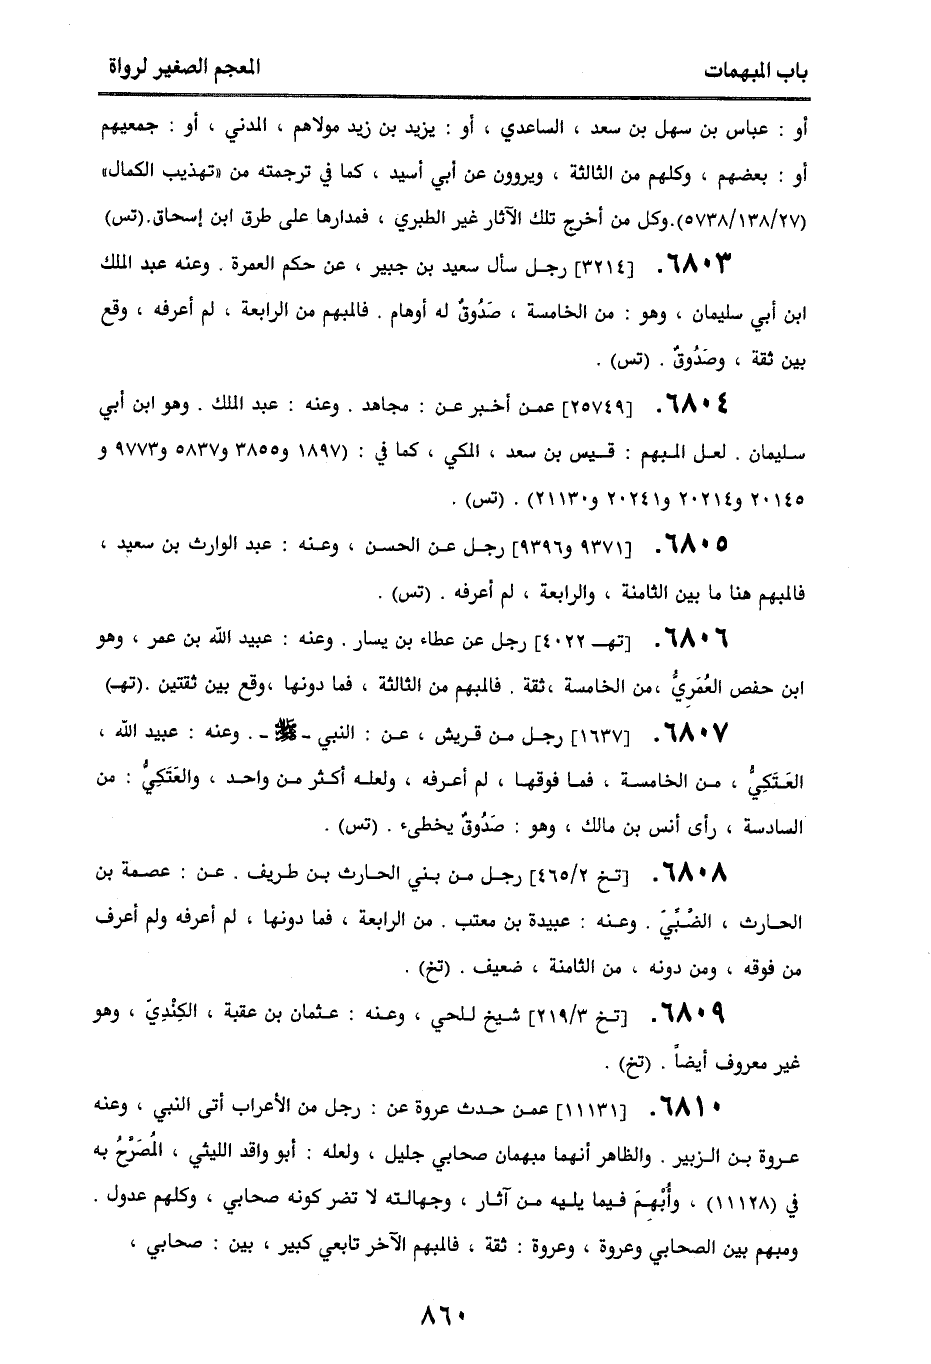 باب المبهمات
المعجم الصغير لرواة
أو : عباس بن سهل بن سعد ، الساعدي ، أو : يزيد بن زيد مولاهم ، المدني ، أو : جمعيهم
أو : بعضهم ، وكلهم من الثالثة ، ويروون عن أبي أسيد ، كما في ترجمته من «تهذيب الكمال»
(٥٧٣٨/١٣٨/٢٧).وكل من أخرج تلك الآثار غير الطبري ، فمدارها على طرق ابن إسحاق.(تس)
٦٨٠٣. [٣٢١٤] رجل سأل سعيد بن جبير ، عن حكم العمرة . وعنه عبد الملك
ابن أبي سليمان ، وهو : من الخامسة ، صَدُوقٌ له أوهام . فالمبهم من الرابعة ، لم أعرفه ، وقع
بين ثقة ، وصَدُوقٌ . (تس) .
٦٨٠٤. [٢٥٧٤٩] عمن أخبر عن : مجاهد . وعنه : عبد الملك . وهو ابن أبي
سليمان . لعل المبهم : قيس بن سعد ، المكي ، كما في : (١٨٩٧ و٣٨٥٥ و٥٨٣٧ و٩٧٧٣ و
٢٠١٤٥ و٢٠٢١٤ و٢٠٢٤١ و٢١١٣٠) . (تس) .
٦٨٠٥. [٩٣٧١ و٩٣٩٦] رجل عن الحسن ، وعنه : عبد الوارث بن سعيد ،
فالمبهم هنا ما بين الثامنة ، والرابعة ، لم أعرفه . (تس) .
٦٨٠٦. [تهـ ٤٠٢٢] رجل عن عطاء بن يسار . وعنه : عبيد الله بن عمر ، وهو
ابن حفص العُمَرِيُّ ،من الخامسة ،ثقة . فالمبهم من الثالثة ، فما دونها ،وقع بين ثقتين .(تهـ)
٦٨٠٧. [١٦٣٧] رجل من قريش ، عن : النبي -ﷺ- . وعنه : عبيد الله ،
العَتَكِيُّ ، من الخامسة ، فما فوقها ، لم أعرفه ، ولعله أكثر من واحد ، والعَتَكِيُّ : من
السادسة ، رأى أنس بن مالك ، وهو : صَدُوقٌ يخطىء . (تس) .
٦٨٠٨. [تخ ٤٦٥/٢] رجل من بني الحارث بن طريف . عن : عصمة بن
الحارث ، الضَّبِّيّ . وعنه : عبيدة بن معتب . من الرابعة ، فما دونها ، لم أعرفه ولم أعرف
من فوقه ، ومن دونه ، من الثامنة ، ضعيف . (تخ) .
٦٨٠٩. [تخ ٢١٩/٣] شيخ للحي ، وعنه : عثمان بن عقبة ، الكِنْدِيّ ، وهو
غير معروف أيضاً . (تخ) .
٦٨١٠. [١١١٣١] عمن حدث عروة عن : رجل من الأعراب أتى النبي ، وعنه
عروة بن الزبير . والظاهر أنهما مبهمان صحابي جليل ، ولعله : أبو واقد الليثي ، المُصَرَّحُ به
في (١١١٢٨) ، وأُبْهِمَ فيما يليه من آثار ، وجهالته لا تضر كونه صحابي ، وكلهم عدول .
ومبهم بين الصحابي وعروة ، وعروة : ثقة ، فالمبهم الآخر تابعي كبير ، بين : صحابي ،
٨٦٠